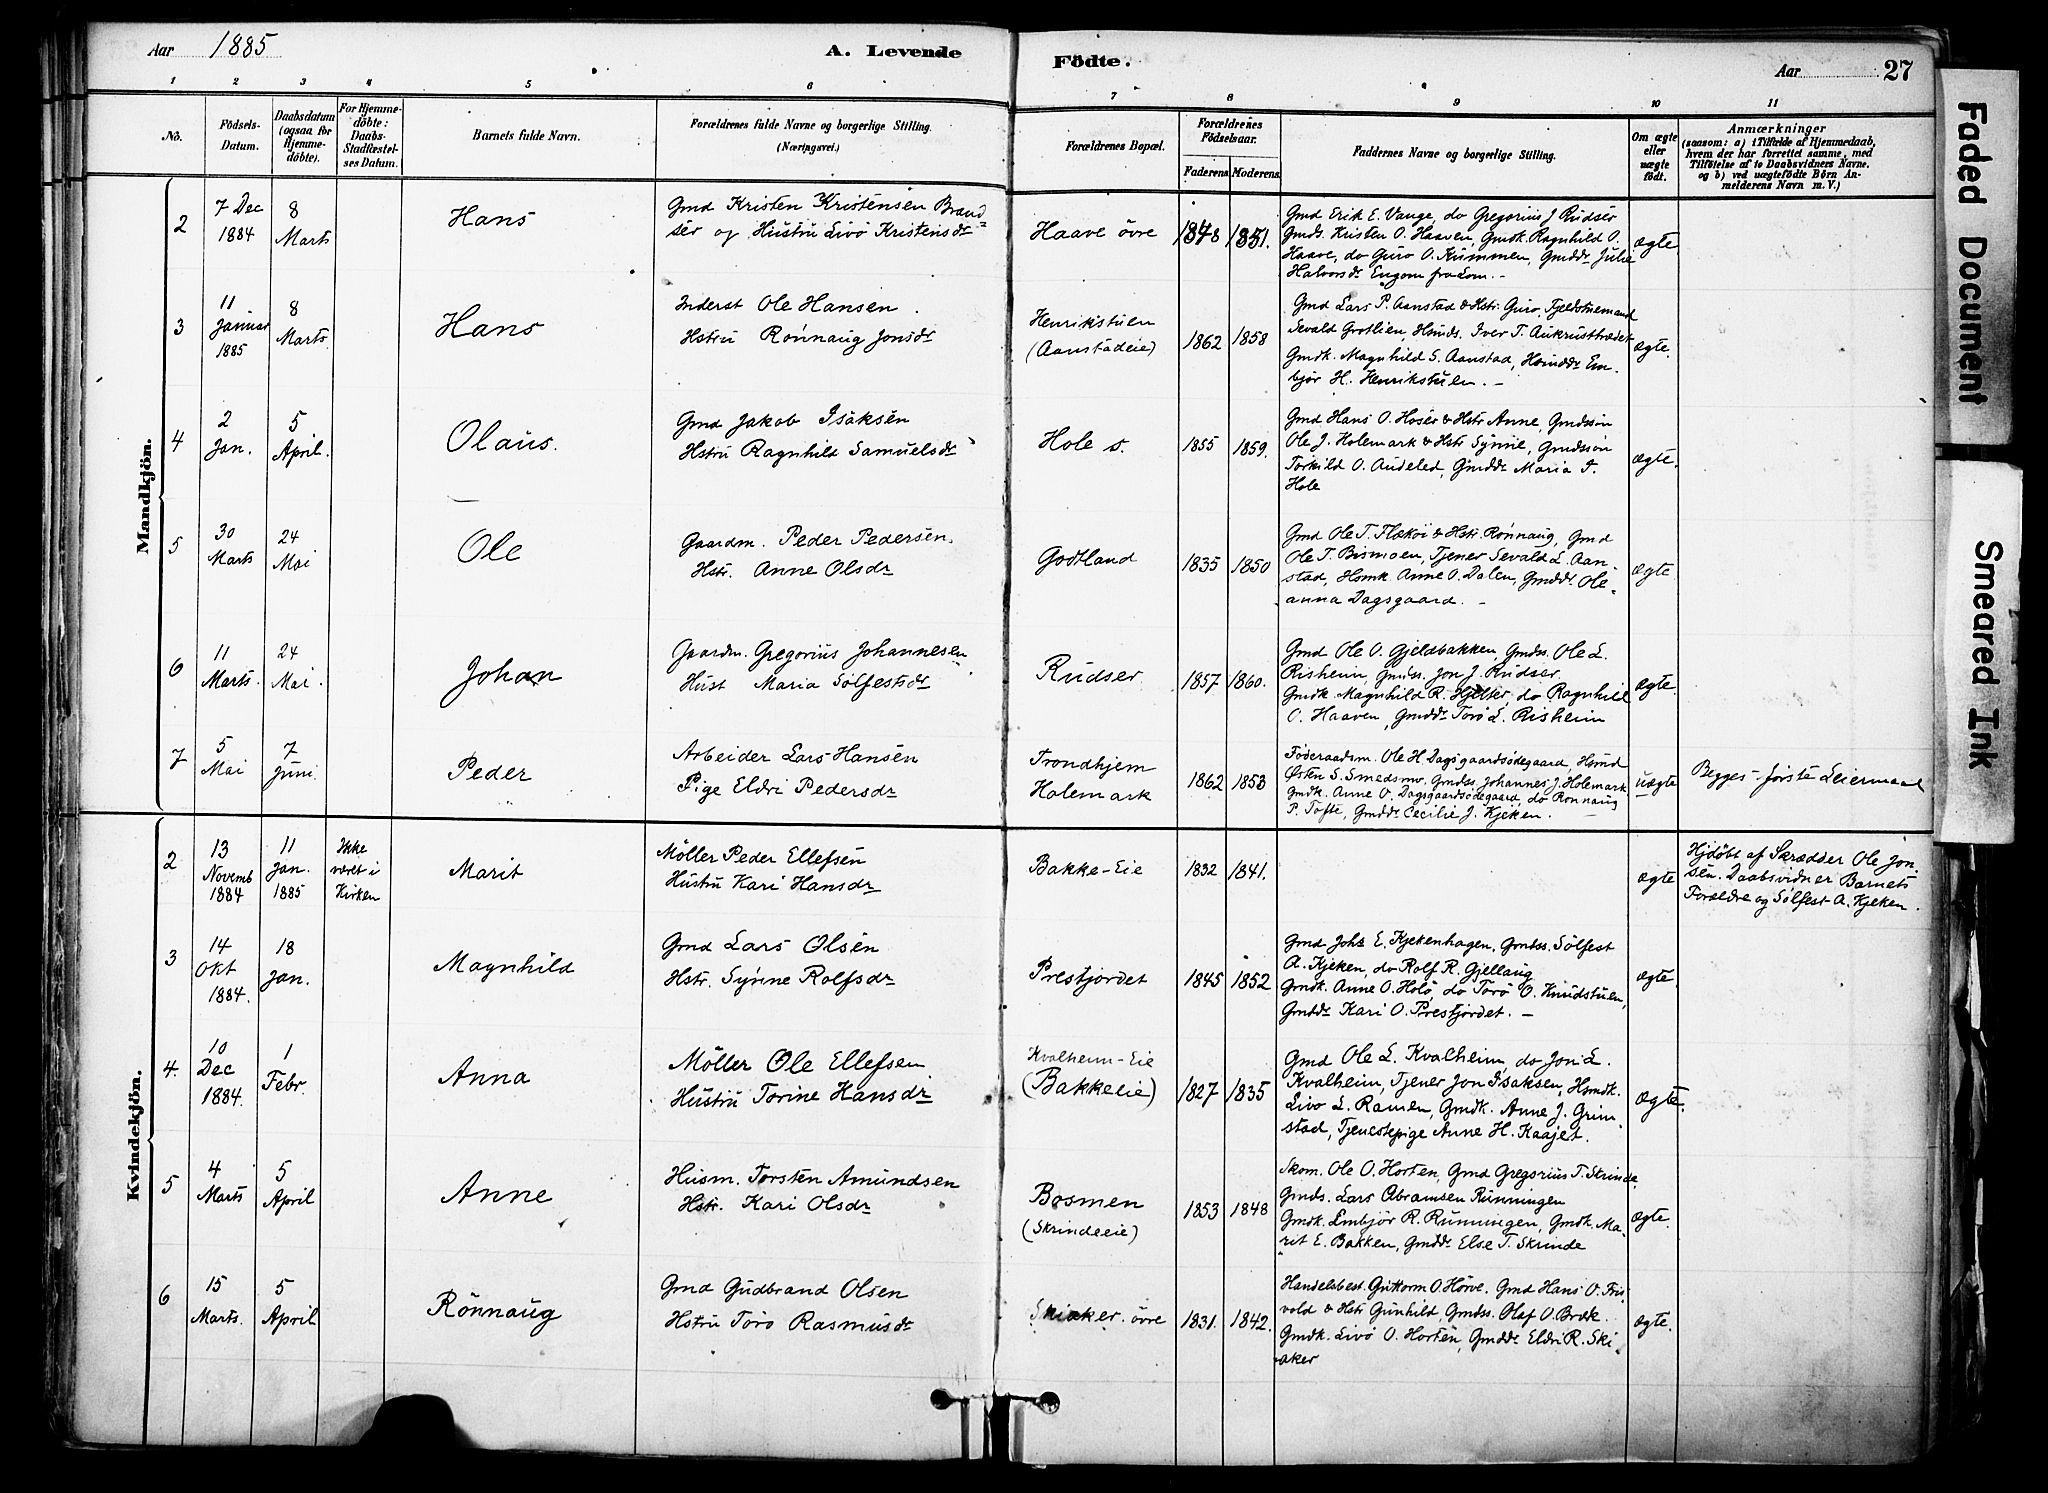 Aar 1885
A. Levende
Födte.
Aar
27
1 2 3 4 5 6 7 8 9 10 11
No.
Födsels-
Datum.
Daabsdatum
(ogsaa for
Hjemme-
döbte).
For Hjemme-
döbte:
Daabs-
Stadfæstel-
ses Datum.
Barnets fulde Navn.
Forældrenes fulde Navne og borgerlige Stilling.
(Næringsvei.)
Forældrenes Bopæl.
Forældrenes
Födselsaar.
Faderens. Moderens.
Faddernes Navne og borgerlige Stilling.
Om ægte
eller
uægte
födt.
Anmærkninger
(saasom: a) i Tilfælde af Hjemmedaab,
hvem der har forrettet samme, med
Tilföielse af to Daabsvidners Navne.
og b) ved uægtefödte Börn An-
melderens Navn m. V.)
Mandkjön.
2
7 Dec
1884
8
Marts
Hans
Gmd Kristen Kristensen Brand-
sér og Hustru Livö Kristensdr
Haave övre
1848
1851.
Gmd Erik E. Vange, do Gregorius J Rudsér
Gmds. Kristen O. Haaven, Gmdk. Ragnhild O.
Haave, do Guro O. Kummen, Gmddr Julie
Halvorsdr Engom fra Lom. -
ægte.
3
11
Januar
1885
8
Marts.
Hans
Inderst Ole Hansen
Hstru Rönnaug Jonsdr
Henrikstuen
(Aanstadeie)
1862
1858
Gmd Lars P. Aanstad & Hstr. Guro, Fjeldstuemand
Sevald Grotlien, Hsmds. Iver T. Aukrusttrædet
Gmdk. Magnhild S. Aanstad, Hsmddr Em-
björ H. Henrikstuen. -
ægte.
4
2
Jan.
5
April.
Olaus.
Gmd Jakob Isaksén
Hstru Ragnhild Samuelsdr
Hole s.
1855
1859.
Gmd Hans O. Hosér & Hstr Anne, Gmdssön
Ole J. Holemark & Hstr Synnie, Gmdssön
Torkild O. Andeled, Gmddr Maria I.
Hole
ægte.
5
30
Marts
24
Mai
Ole
Gaardm. Peder Pedersén.
Hstr. Anne Olsdr
Godtland
1835
1850
Gmd Ole T. Flæköi & Hstr. Rönnaug, Gmd
Ole T. Bismoen, Tjener Sevald L. Aan-
stad, Hsmk Anne O. Dalen, Gmddr. Ole-
anna Dagsgaard. -
ægte
6
11
Marts.
24
Mai.
Johan
Gaardm. Gregorius Johannesén
Hust Maria Sölfestsdr
Rudser
1857
1860.
Gmd Ole O. Gjeldbakken, Gmdss. Ole L.
Risheim, Gmdss. Jon J. Rudser
Gmdk. Magnhild R. Hjelter, do Ragnhild
O. Haaven, Gmddr Torö L. Risheim
ægte.
7
5
Mai
7
Juni.
Peder
Arbeider Lars Hansén
Pige Eldri Pedersdr
Trondhjem
Holemark
1862
1853
Föderaadsm. Ole H. Dagsgaardsödegaard, Hsmd
Østen S. Smedsmo, Gmdss. Johannes J. Holemark.
Gmdk. Anne O. Dagsgaardsödegaard, do Rönnaug
P. Tofte, Gmddr Cecilie J. Kjeken.
uægte
Begges förste Leiermaal
Kvindekjön.
2
13
Novemb
1884
11
Jan.
1885
Ikke
været i
Kirken
Marit
Möller Peder Ellefsén
Hustru Kari Hansdr
Bakke-Eie
1832
1841.
ægte
Hjdöbt af Skrædder Ole Jon-
sen. Daabsvidner Barnets
Forældre og Sölfest A. Kjeken.
3
14
Okt
1884.
18
Jan.
Magnhild
Gmd Lars Olsén
Hstr. Synne Rolfsdr
Prestjordet
1845
1852
Gmd Johs E. Kjekenhagen, Gmdss. Sölfest
A. Kjeken, do Rolf R. Gjellaug
Gmdk. Anne O. Holö, do Torö O. Knudstuen,
Gmddr Kari O. Prestjordet. -
ægte.
4.
10
Dec
1884.
1
Febr.
Anna
Möller Ole Ellefsen
Hustru Torine Hansdr
Kvalheim-Eie
(Bakkeeie)
1827
1835
Gmd Ole L. Kvalheim, do Jon L.
Kvalheim, Tjener Jon Isaksen, Hsmdk.
Livo L. Ramen, Gmdk. Anne J. Grim-
stad, Tjenestepige Anne H. Kaajet.
ægte.
5
4
Marts
5
April
Anne
Husm. Torsten Amundsen
Hstr. Kari Olsdr
Bosmen
(Skrindeeie)
1853
1848
Skom. Ole O. Horten, Gmd Gregorius T. Skrinde
Gmds. Lars Abramsen Runningen
Gmdk. Embjör R. Runningen, Gmdk. Ma-
rit E. Bakken, Gmddr Else T. Skrinde
ægte.
6
15
Marts.
5
April
Rönnaug
Gmd Gudbrand Olsen
Hstru Torö Rasmusdr
Skiaker övre
1831.
1842.
Handelsbest. Guttorm O. Hörve. Gmd Hans O. Fris-
vold & Hstr Gunhild, Gmdss. Olaf O. Bræk.
Gmdk. Livö O. Hortén, Gmddr Eldri R. Ski-
aker
ægte.
Faded Document
Smeared Ink